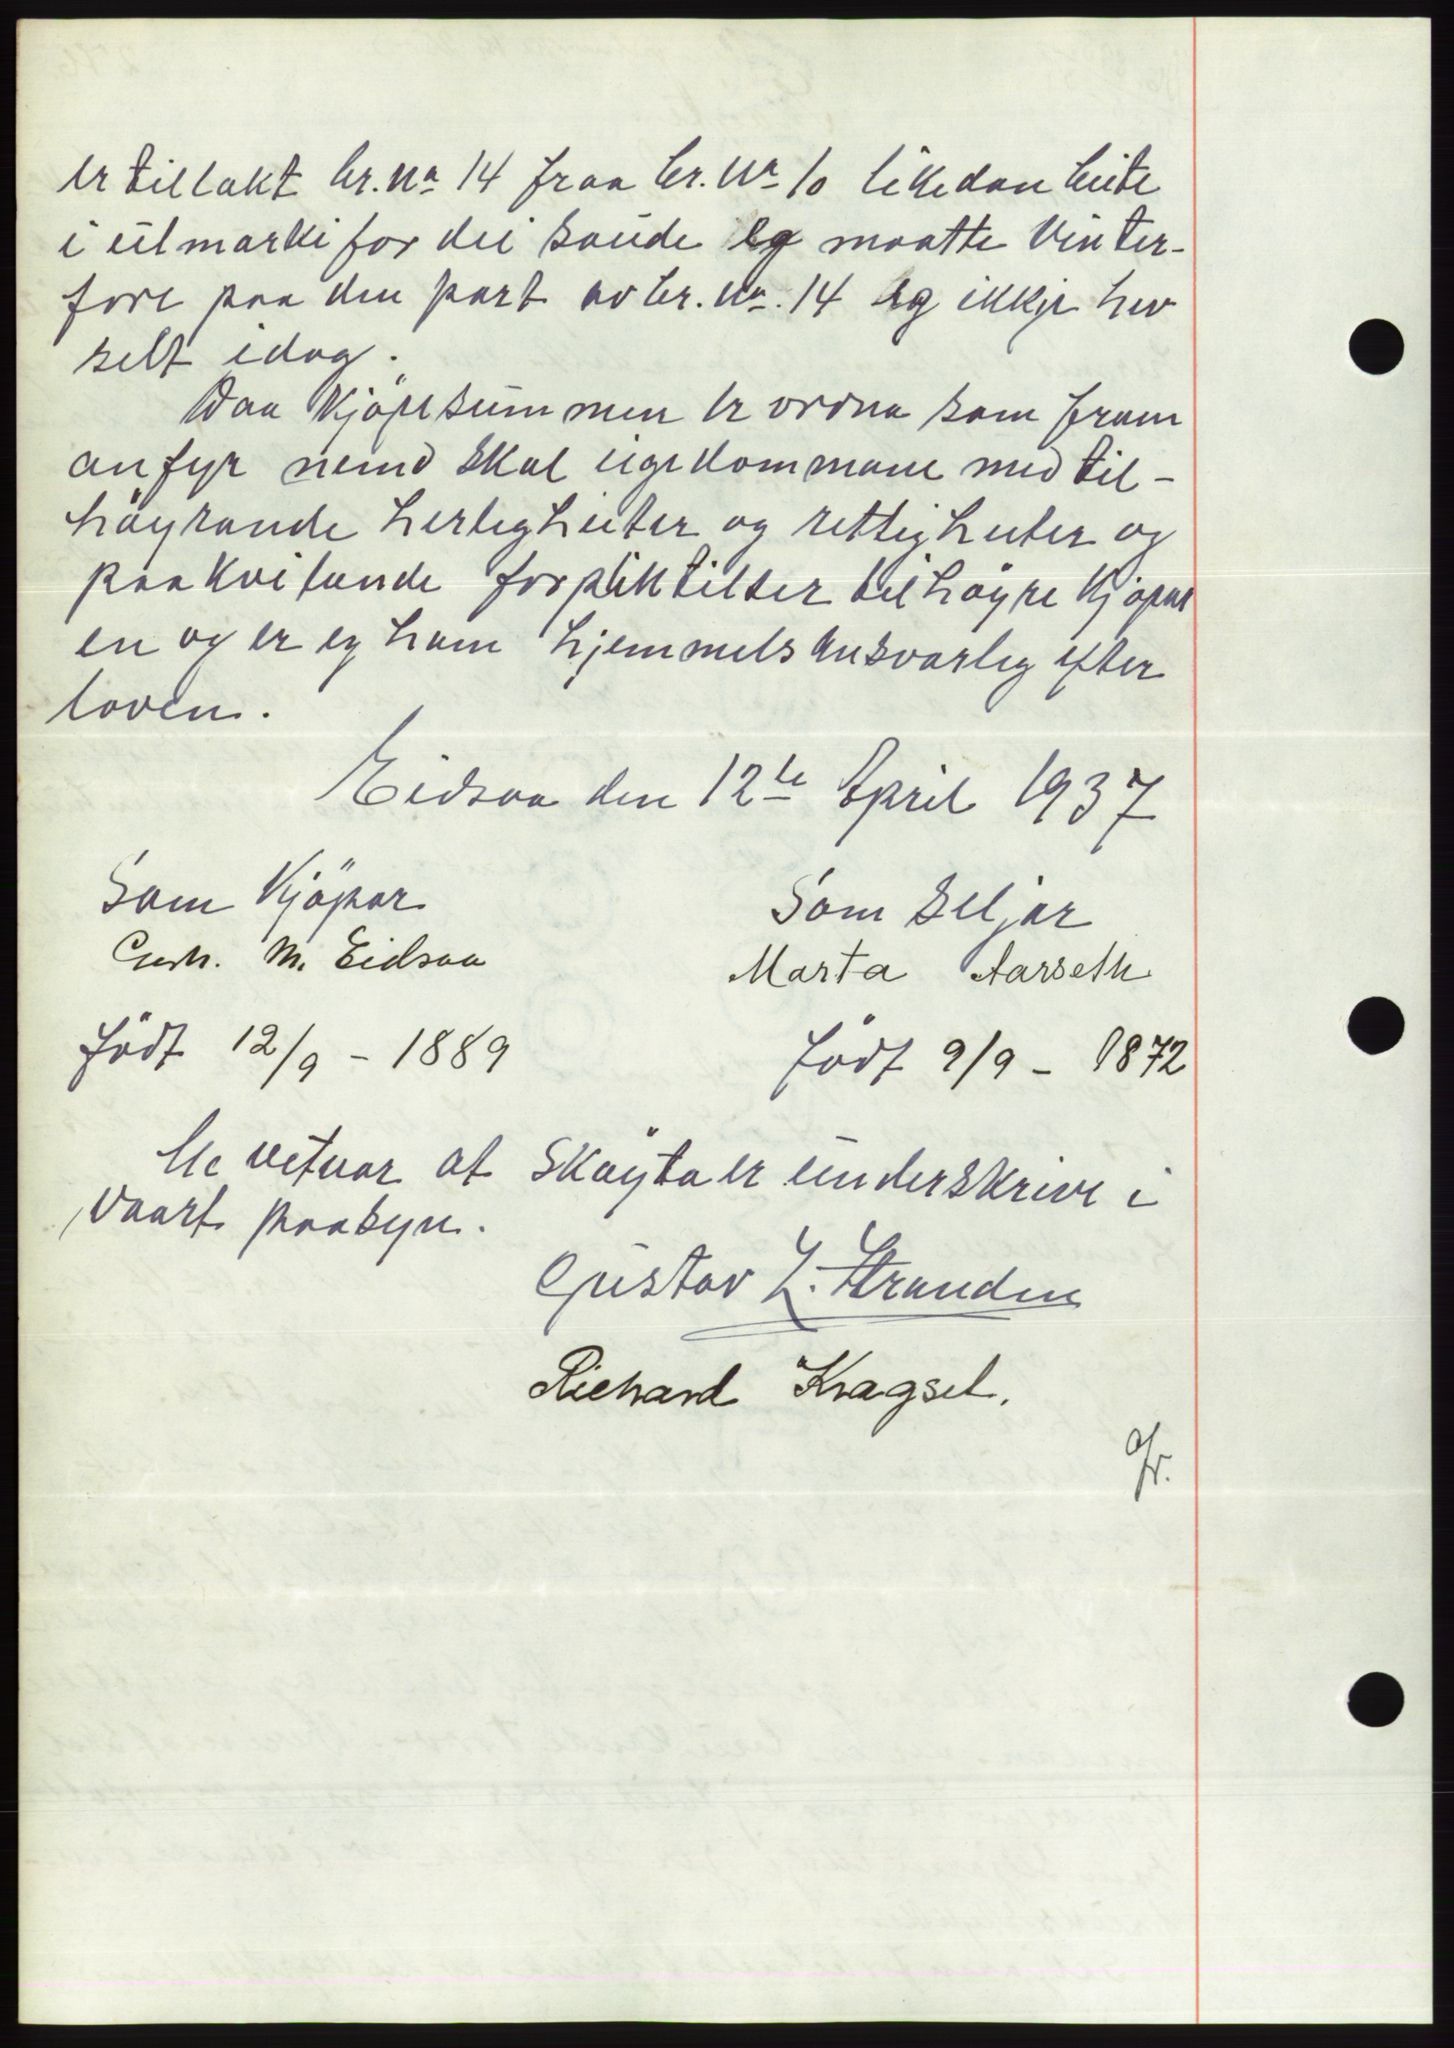 er tillakt br. no 14 fraa br. No 10 likedan beite
i utmarki for dei saude eg maatte vinter-
fore paa den part av br. no. 14 eg ikkje hev
selt idag.
Daa Kjöpesummen er ordna som fram
anfyr nemd skal eigedommane med til-
höyrande herlegheiter og rettigheiter og
paakvilande forpliktilser tilhöyre Kjöpar
en og er eg ham hjemmelsansvarleg efter
loven.
Eidsaa den 12te April 1937
Som Kjöpar
Som Seljar
M. Eidsaa
Marta Aarseth
födt 12/9 - 1889
födt 9/9 - 1872
Me vitnar at Sköyta er underskrive i
vaart paasyn.
Gustav L. Stranden
Richard Kragset.